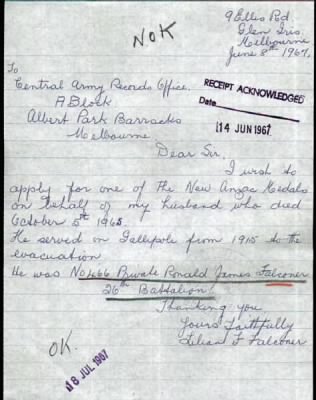 NOK
9 Ellis Rd.
Glen Iris.
Melbourne
June 8th 1967.
To
Central Army Records Office.
A Block
Albert Park Barracks
Melbourne
RECEIPT ACKNOWLEDGED
Date
14 JUN 1967
Dear Sir.
I wish to
apply for one of the New Anzac Medals
on behalf of my husband who died
October 5th 1965
He served on Gallipole from 1915 to the
evacuation
He was No 466 Private Ronald James Falconer
26th Battalion
Thanking you
Yours Faithfully
Lilian F Falconer
OK.
18 JUL 1967